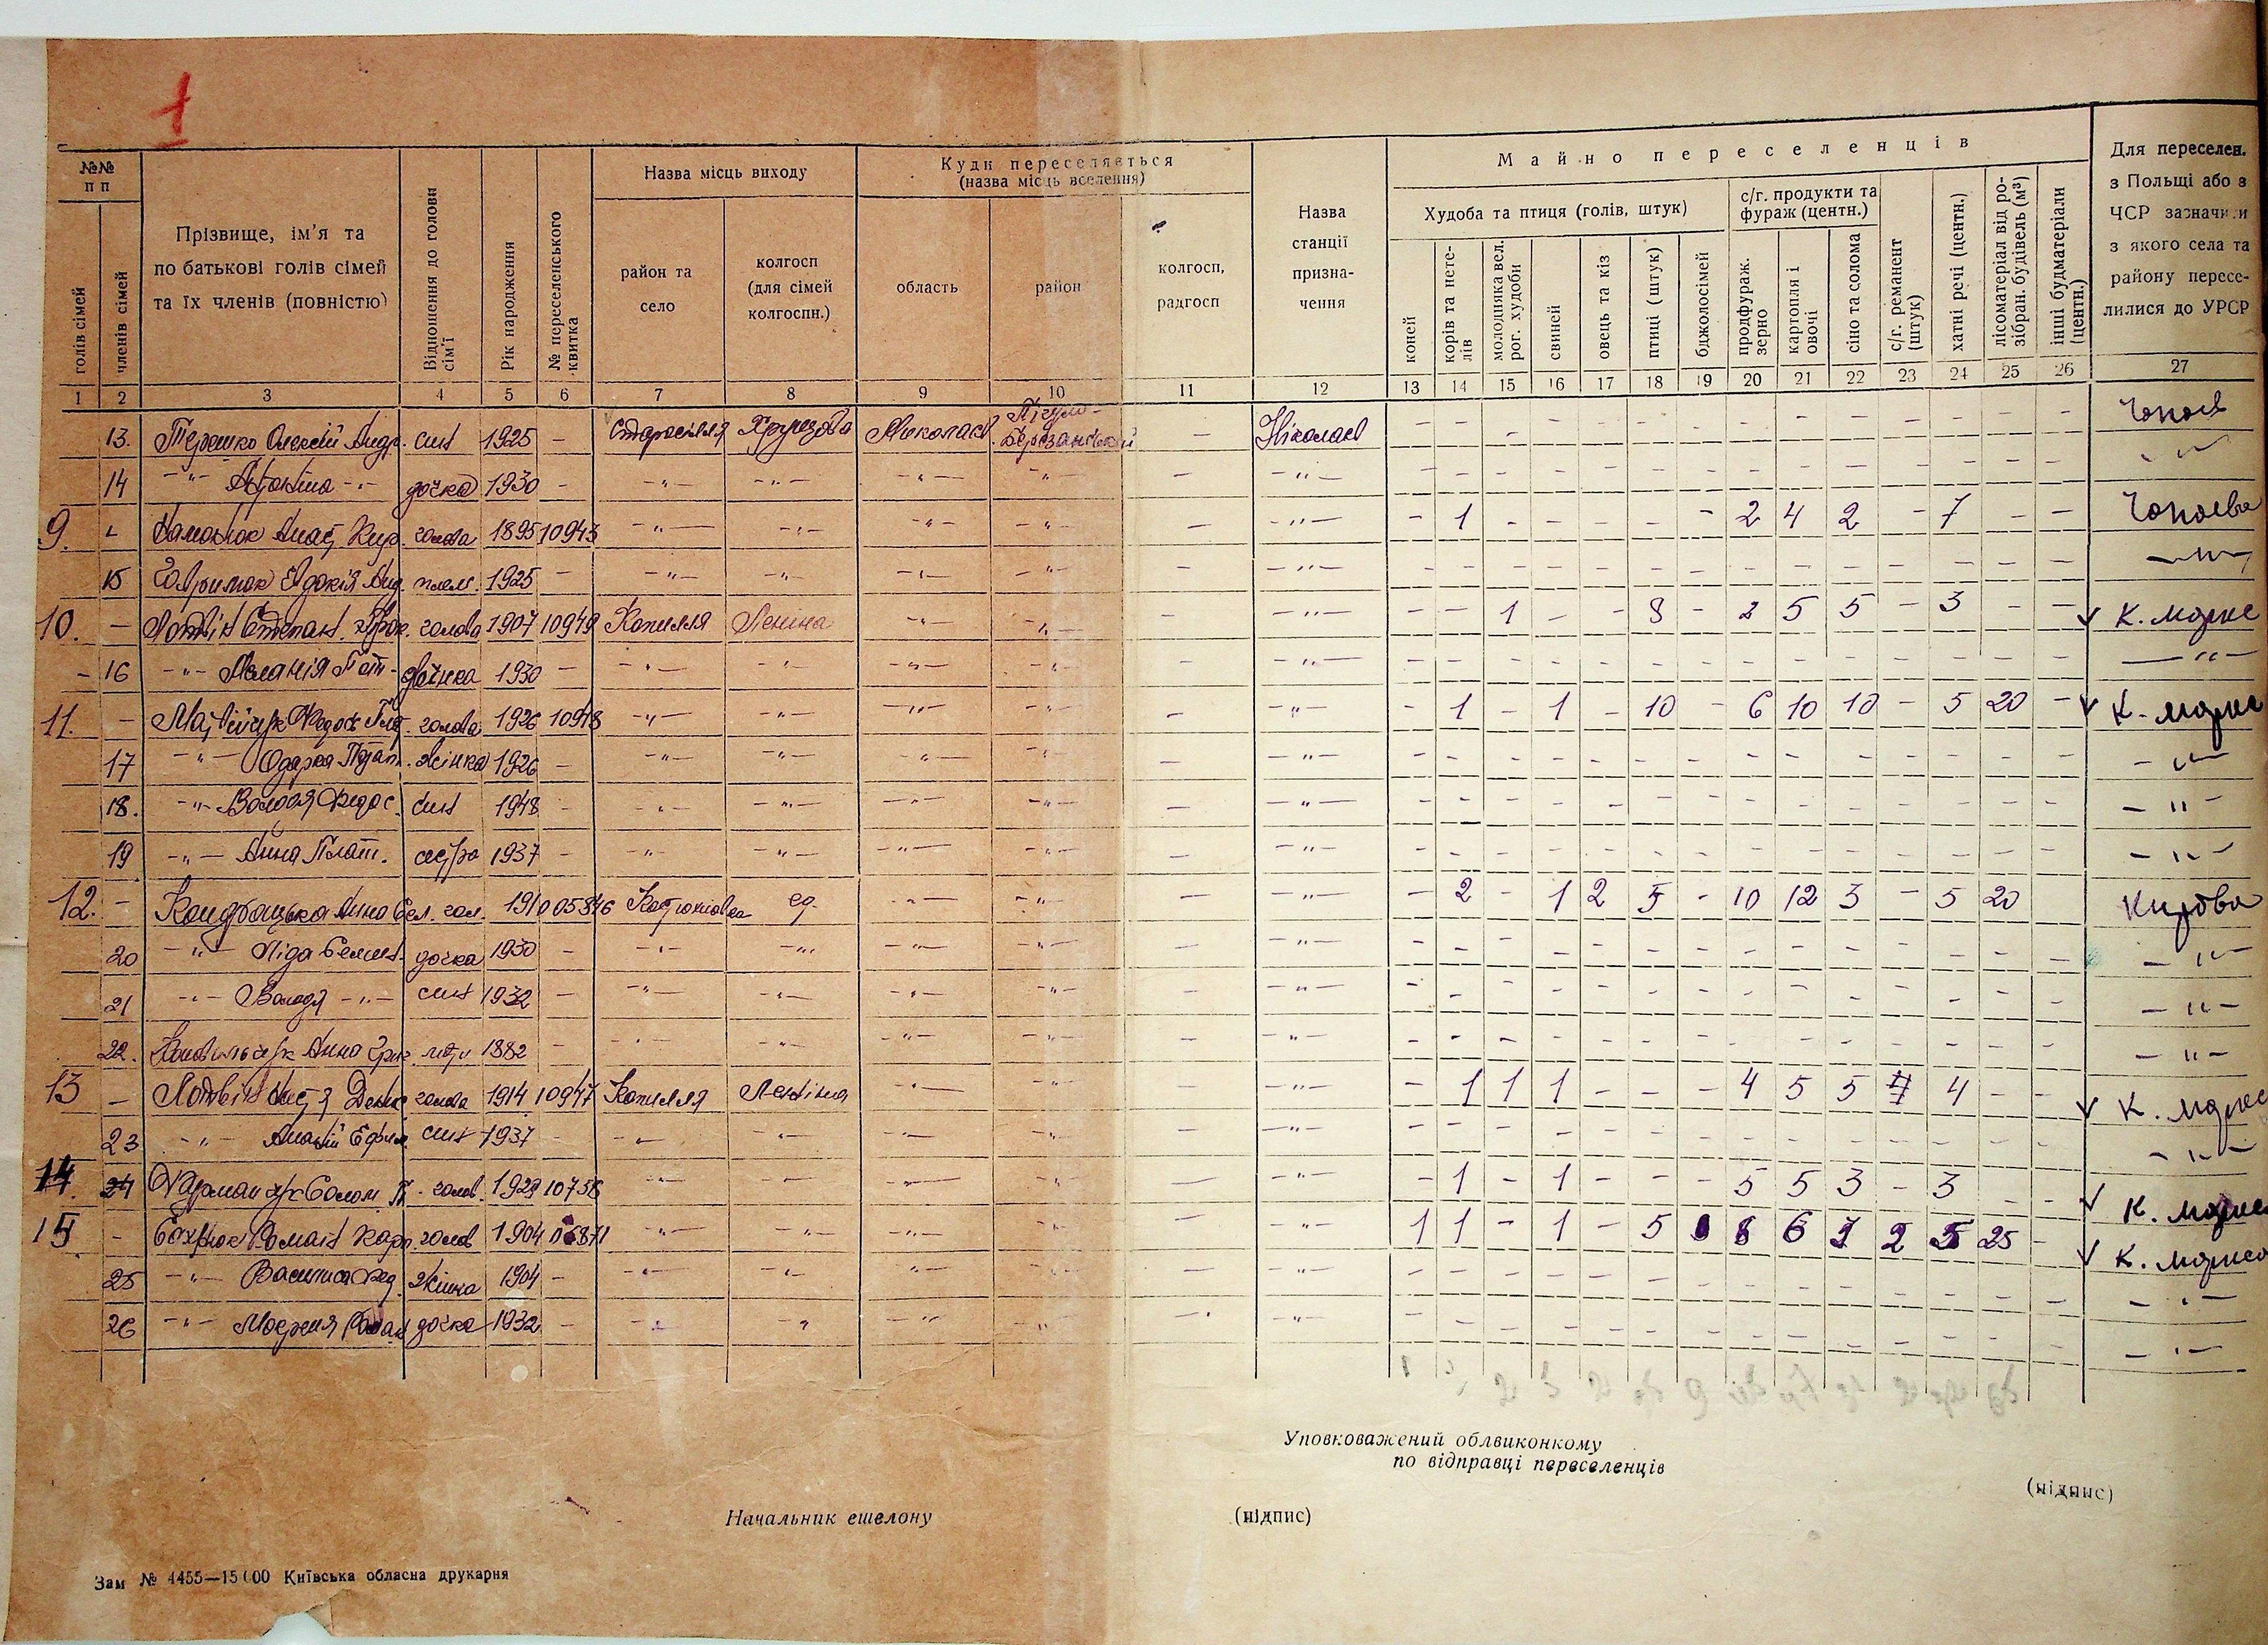 1
№№ п п
Назва місць виходу
Куди переселяється (назва місць вселення)
Майно переселенців
Для переселен. з Польщі або з ЧСР зазначити з якого села та району пересе-лилися до УРСР
голів сімей
членів сімей
Прізвище, ім'я та по батькові голів сімей та їх членів (повністю)
Відношення до голови сім'ї
Рік народження
№ переселенського квитка
район та село
колгосп (для сімей колгоспн.)
область
район
колгосп, радгосп
Назва станції призна-чення
Худоба та птиця (голів, штук)
с/г. продукти та фураж (центн.)
коней
корів та нете-лів
молодняка вел. рог. худоби
свиней
овець та кіз
птиці (штук)
бджолосімей
продфураж. зерно
картопля і овочі
сіно та солома
с/г. реманент (штук)
хатні речі (центн.)
лісоматеріал від ро-зібран. будівель (м³)
інші будматеріали (центн.)
1 2 3 4 5 6 7 8 9 10 11 12 13 14 15 16 17 18 19 20 21 22 23 24 25 26 27
13. Терешко Олексій Андр. син 1925 - Старосілля Хрущова Миколаєв. Березанський - Ніколаєв - - - - - - - - - - - - -
14 -"- -"- дочка 1930 - -"- -"- -"- -"- - -"- - - - - - - - - - - - - - -"-
9. Кир. голова 1895 10943 -"- -"- -"- -"- - -"- - 1 - - - - - 2 4 2 - 7 - - Чопаєва
15 Гаврилюк Анд. плем. 1925 - -"- -"- -"- -"- - -"- - - - - - - - - - - - - - -"-
10. - Лотвін Степан Прок. голова 1907 10949 Копилля Леніна -"- -"- - -"- - - 1 - - 8 - 2 5 5 - 3 - - К. Маркс
16 -"- Меланія Пот. жінка 1930 - -"- -"- -"- -"- - -"- - - - - - - - - - - - - - -"-
11. - Матвійчук Федос Плат. голова 1926 10948 -"- -"- -"- -"- - -"- - 1 - 1 - 10 - 6 10 10 - 5 20 - К. Маркс
17 -"- Одарка Потап. жінка 1926 - -"- -"- -"- -"- - -"- - - - - - - - - - - - - - -"-
18. -"- Володя Федос. син 1948 - -"- -"- -"- -"- - -"- - - - - - - - - - - - - - -"-
19 -"- Анна Плат. сестра 1937 - -"- -"- -"- -"- - -"- - - - - - - - - - - - - - -"-
12. - Анна гол. 1910 05846 ед. -"- -"- - -"- - 2 - 1 2 5 - 10 12 3 - 5 20 Кирова
20 -"- Ліда дочка 1930 - -"- -"- -"- -"- - -"- - - - - - - - - - - - - - -"-
21 -"- Володя -"- син 1932 - -"- -"- -"- -"- - -"- - - - - - - - - - - - - - -"-
22. Анна Григ. мати 1882 - -"- -"- -"- -"- - -"- - - - - - - - - - - - - - -"-
13 - Лотвін голова 1914 10947 Копилля Леніна -"- -"- - -"- - 1 1 1 - - - 4 5 5 4 - - К. Маркс
23 -"- син 1937 -"- -"- -"- -"- - -"- - - - - - - - - - - - - - -"-
14. 24 Солом. П. голов. 1929 10758 -"- -"- -"- -"- - -"- - 1 - 1 - - - 5 5 3 - 3 - - К. Маркс
15 - Роман Карп. голов 1904 -"- -"- -"- -"- - -"- 1 1 - 1 - 5 8 6 2 5 25 - К. Маркса
25 -"- Василиса Фед. жінка 1904 - -"- -"- -"- -"- -"- - - - - - - - - - - - - - -"-
26 -"- Роман дочка 1932 - -"- -"- -"- -"- -"- - - - - - - - - - - - - - -"-
Уповноважений облвиконкому
по відправці переселенців
(підпис)
Начальник ешелону
(підпис)
Зам № 4455—15000 Київська обласна друкарня